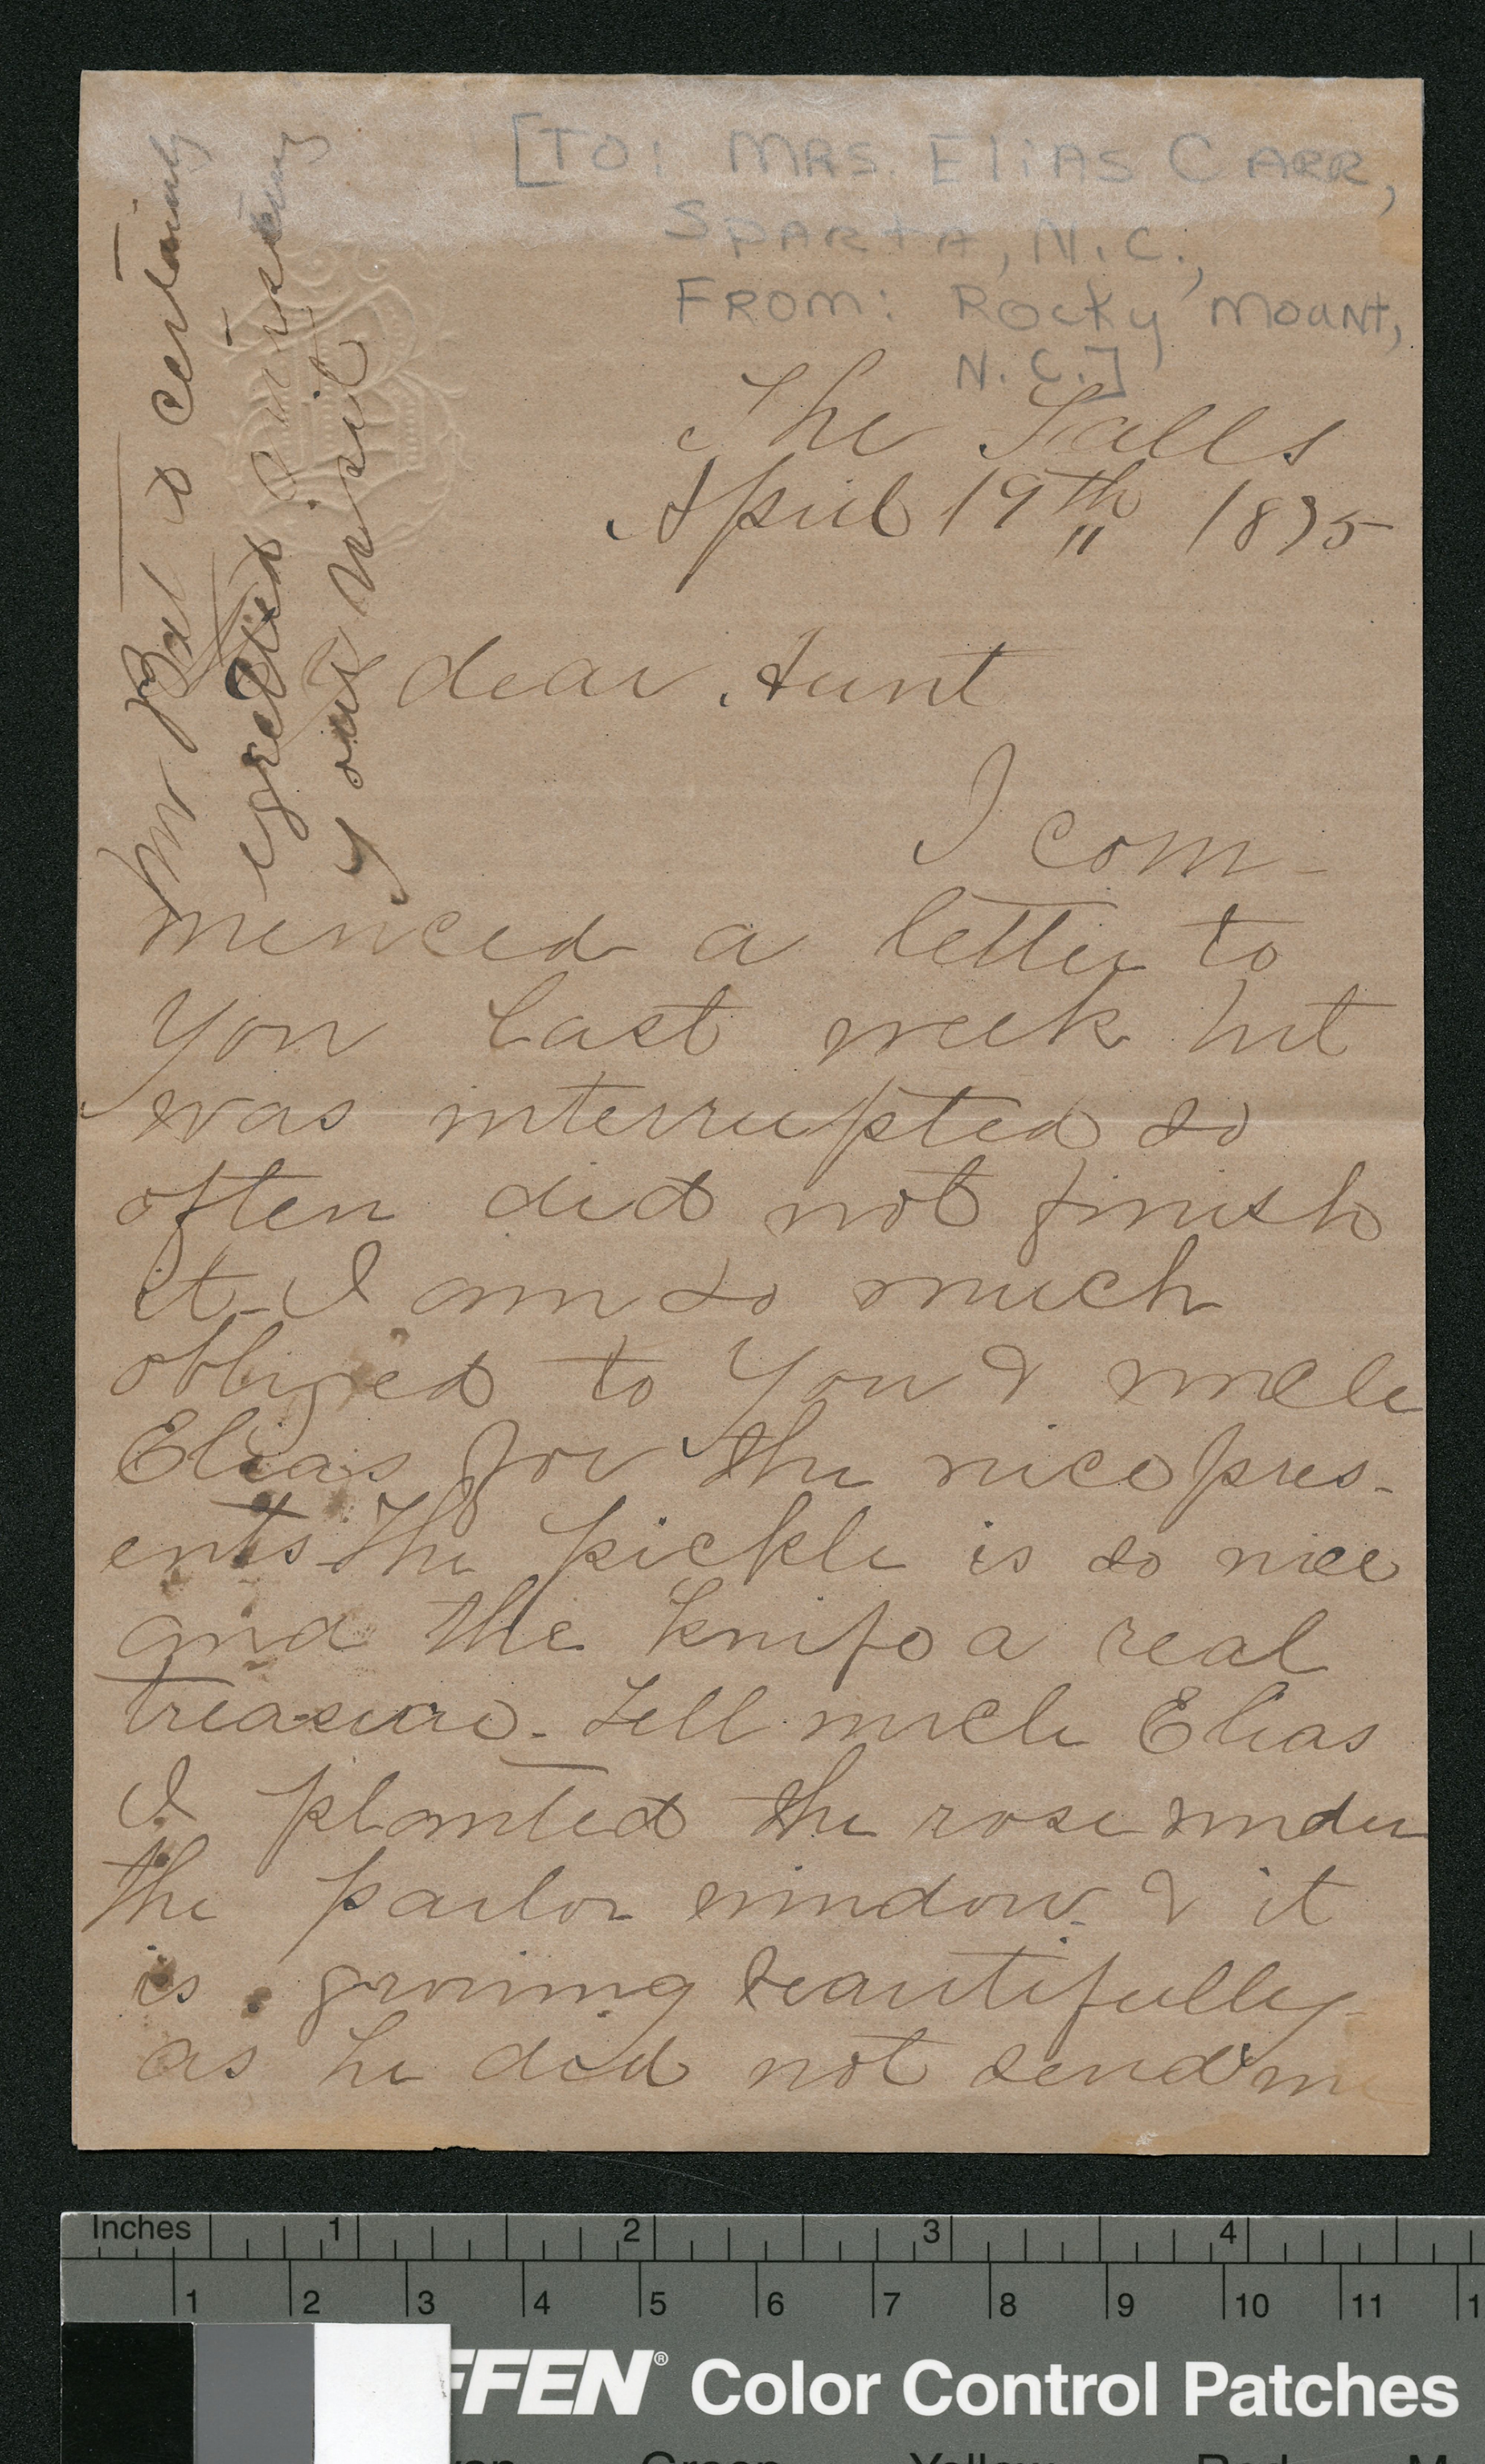 [TO: MRS. ELIAS CARR,
SPARTA, N.C.,
FROM: ROCKY MOUNT,
N.C.]
The Falls
April 19th 1875
My dear Aunt
I com-
menced a letter to
you last week but
was interrupted so
often did not finish
it - I am so much
obliged to you & uncle
Elias for the nice pres-
ents The pickle is so nice
and the knife a real
treasure - Tell uncle Elias
I planted the rose under
the parlor window & it
is growing beautifully
as he did not send me
Mr Bat is certainly
your visit
Inches 1 2 3 4
1 2 3 4 5 6 7 8 9 10 11
FFEN® Color Control Patches